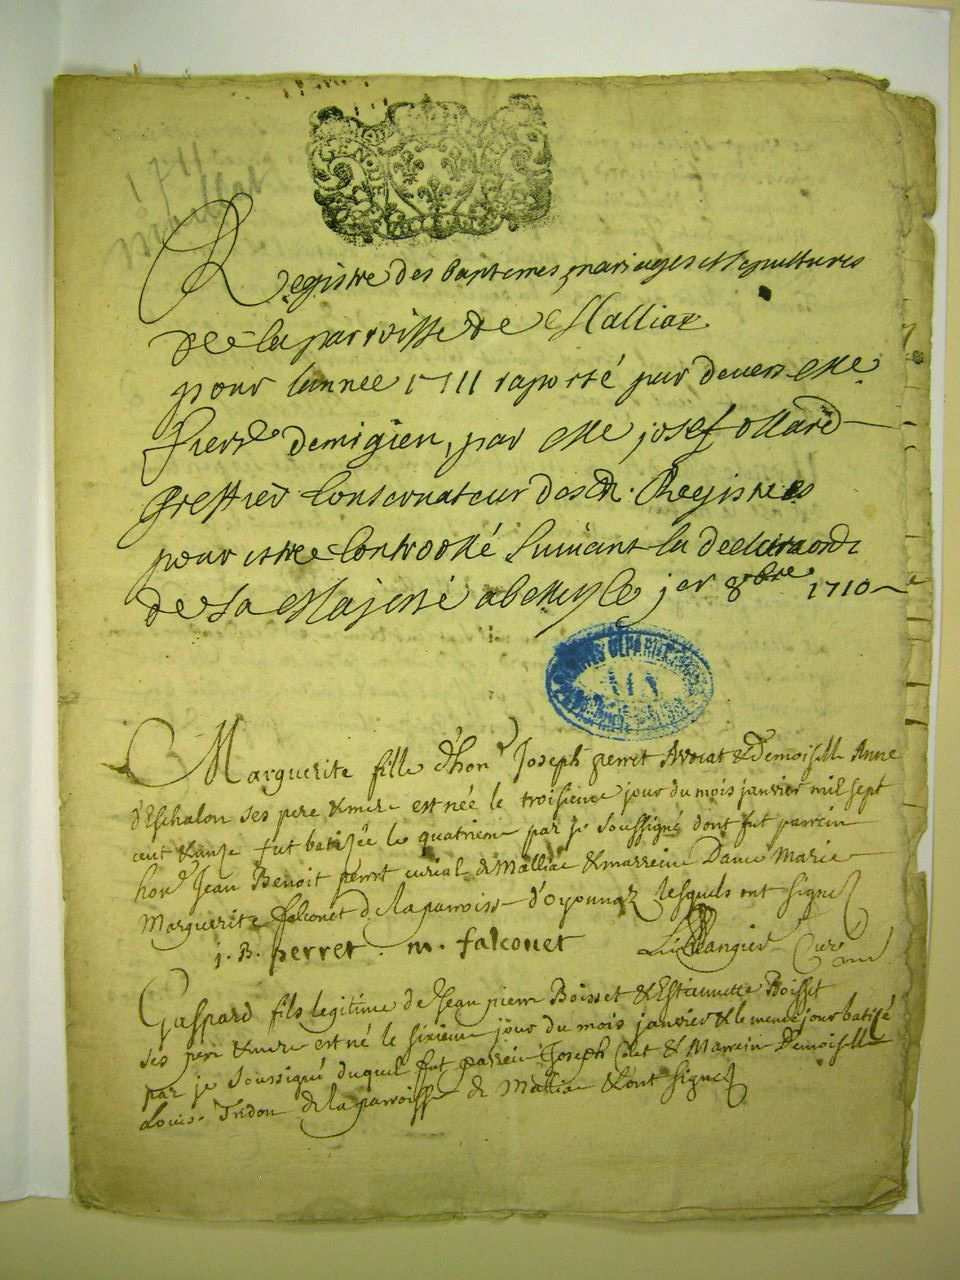 1711
GEN DE
Registre des baptemes, mariages et sepultures
de la parroisse de Malliat
pour lannee 1711 raporté par devers Me
pierre demigieu, par Me josef ollard
greffier Conservateur desd. Registres
pour estre Controollé suivant la
de Sa Majesté le jer 8bre 1710
Marguerite fille d'honr. Joseph perret Avocat & Demoiselle Anne
d'Eschalon ses pere & mere est née le troisieme jour du mois janvier mil sept
cent & unze fut batisée le quatrieme par je soussigné dont fut parrein
honr. Jean Benoit perret curial de Malliat & marreine Dame Marie
Marguerite falconet de la parroisse d'Oyonnaz lesquels ont signez
j. B. perret . m. falconet Curé
Gaspard fils legitime de Jean pierre Boisset & Estiennette Boisset
ses pere & mere est né le sixieme jour du mois janvier & le meme jour batisé
par je soussigné duquel fut parrein Joseph & Marrein Demoiselle
Louise Tridon de la parroisse de Malliat & ont signez